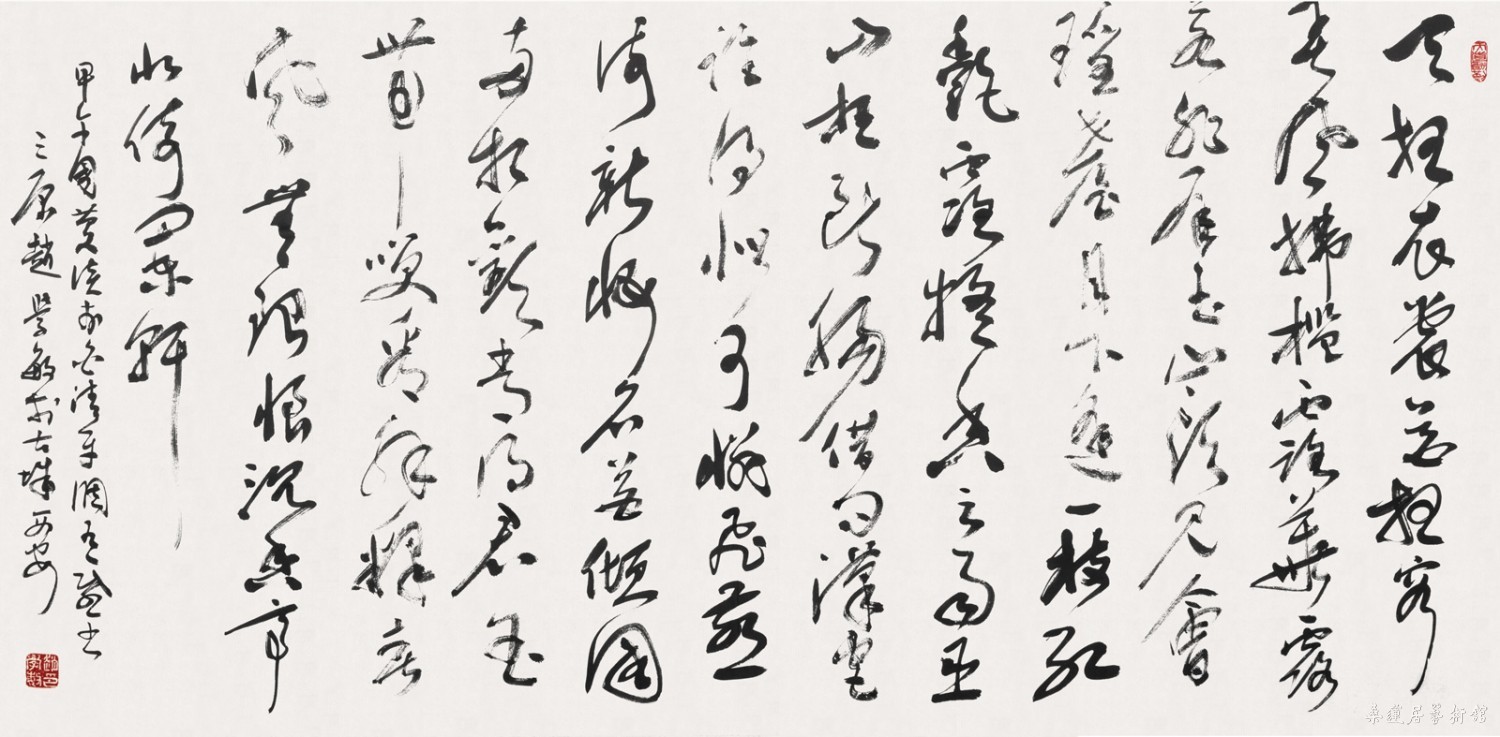 云想衣裳花想容
春風拂檻露華濃
若非群玉山頭見會
瑶臺月下逢一枝紅
艷露凝香雲雨巫
山枉斷腸借問漢宮
誰得似可憐飛燕
倚新妝名花傾國
兩相歡常得君王
帶笑看解釋春
風無限恨沉香亭
北倚闌幹
甲午國慶讀李白清平調有感書
三原趙學敏於古城西安
桑蓮居藝術館